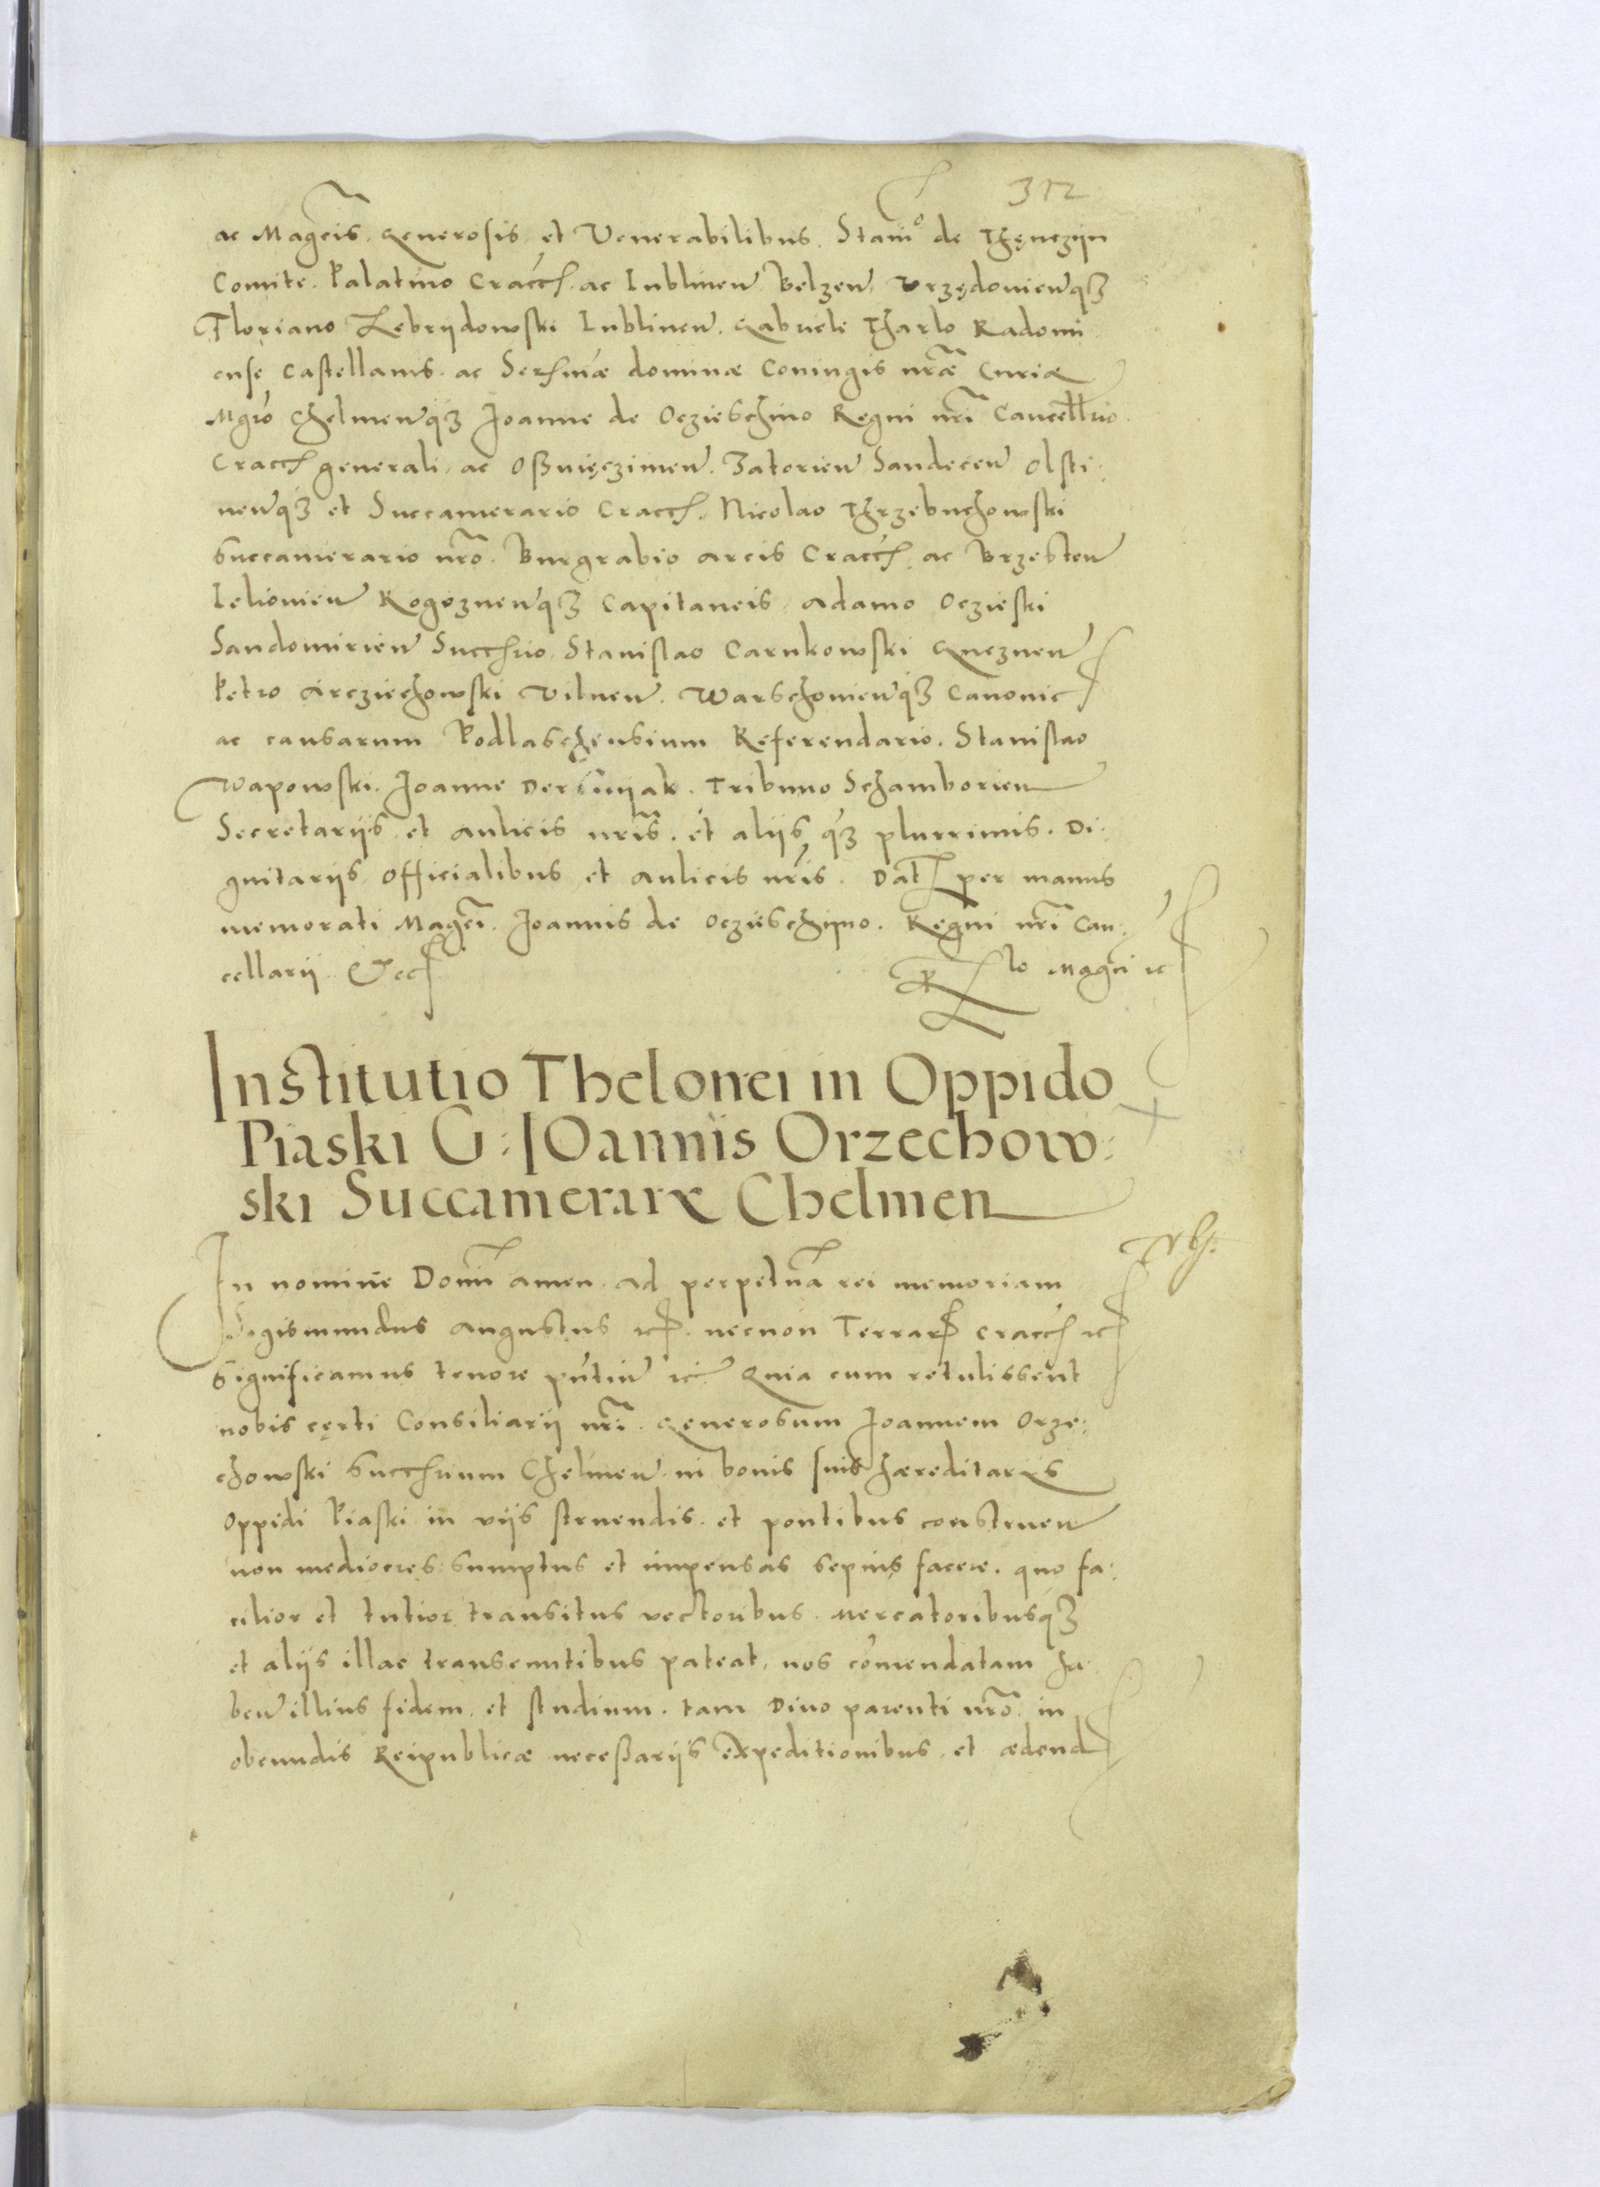 312
ac Magcis. Generosis et Venerabilibus. Stanio de Thęnczijn
Comite. Palatino Craccen. ac Lublinen Belzen, Vrzędouienqȝ
Floriano Zebrzydowski Lublinen. Gabrieli Tharlo Radomi
ense Castellanis. ac Serenmæ dominæ Coniugis nræ Curiæ
Mgro Chelmenqȝ Joanne de Oczieschino Regni nri Cancellrio.
Craccen generali, ac Oßwięczimen. Zatorien Sandecen Olsti:
nenqȝ et Succamerario Craccen. Nicolao Thrzebuchowski
Succamerario nro. Burgrabio arcis Craccen, ac Brzesten
Lelouien Rogoznenqȝ Capitaneis, Adamo Oczieski
Sandomirien Succrio. Stanislao Carnkowski Gneznen
Petro Arcziechowski Vilnen. Warschouienqȝ Canonic
ac causarum Podlaschensium Referendario. Stanislao
Wapowski. Joanne Dersniyak. Tribuno Schamborien
Secretariis et aulicis nris. et aliis qȝ plurrimis. Di:
gnitariis Officialibus et aulicis nris. Dat per manus
memorati Magci. Joannis de Oczieschijno. Regni nri Can:
cellarii. Etc Rlo Magci ec
Institutio Thelonei in Oppido
Piaski G: Joannis Orzechow:
ski Succamerarij Chelmen
In nomine Domi amen. Ad perpetua rei memoriam
Sigismundus Augustus ec. necnon Terrar Craccen ec
Significamus tenore pntiu ec. Quia cum retulissent
nobis cęrti Consiliarii nri. Generosum Joannem Orze:
chowski Succrium Chelmen. in bonis suis hæreditariis
Oppidi Piaski in viis struendis. et pontibus construen
non mediocres sumptus et impensas sepius facere. quo fa:
cilior et tutior transitus vectoribus. Mercatoribusqȝ
et aliis illac transeuntibus pateat, nos comendatam ha
ben illius fidem. et studium. tam Diuo parenti nro. in
obeundis Reipublicæ neceßariis expeditionibus. et ædend